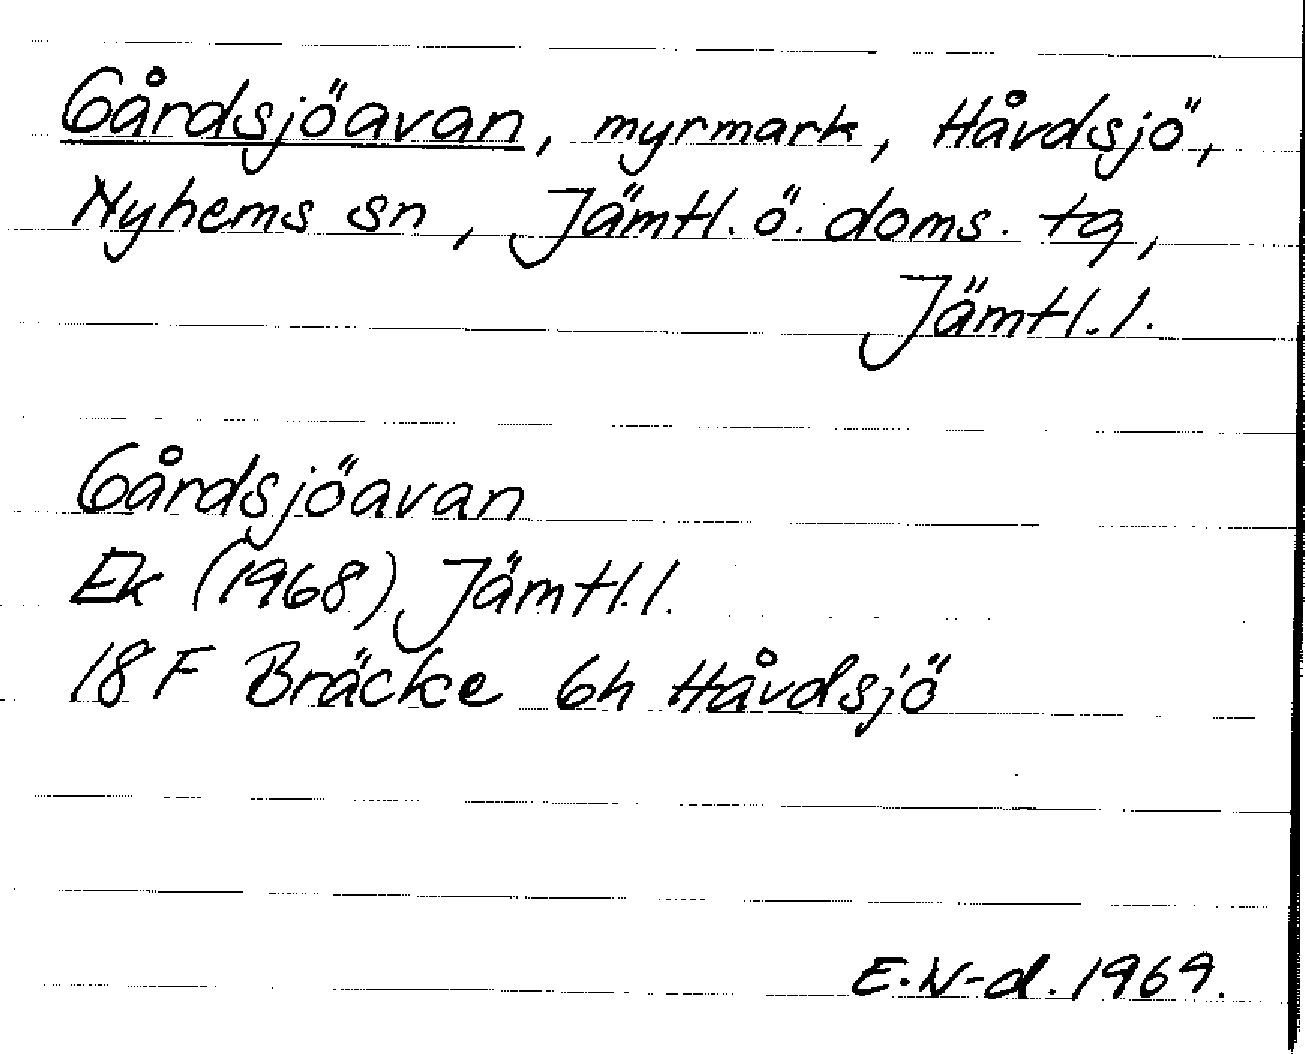 Gårdsjöavan, myrmark, Håvdsjö,
Nyhems sn, Jämtl. ö. doms. tg,
Jämtl. l.
Gårdsjöavan
Ek (1968) Jämtl. l.
18 F Bräcke 6h Håvdsjö
E. W-d. 1969.